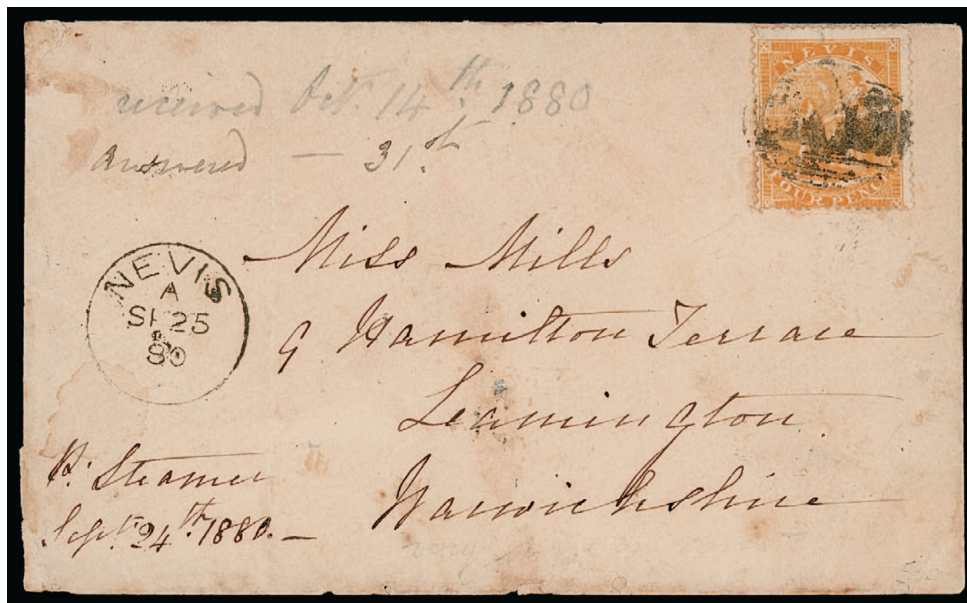 received Oct. 14th 1880
answered — 31st
NEVIS
FOUR PENCE
Miss Mills
9 Hamilton Terrace
Leamington
Warwickshire
NEVIS
A
SP 25
80
P. Steamer
Sept. 24th. 1880. —